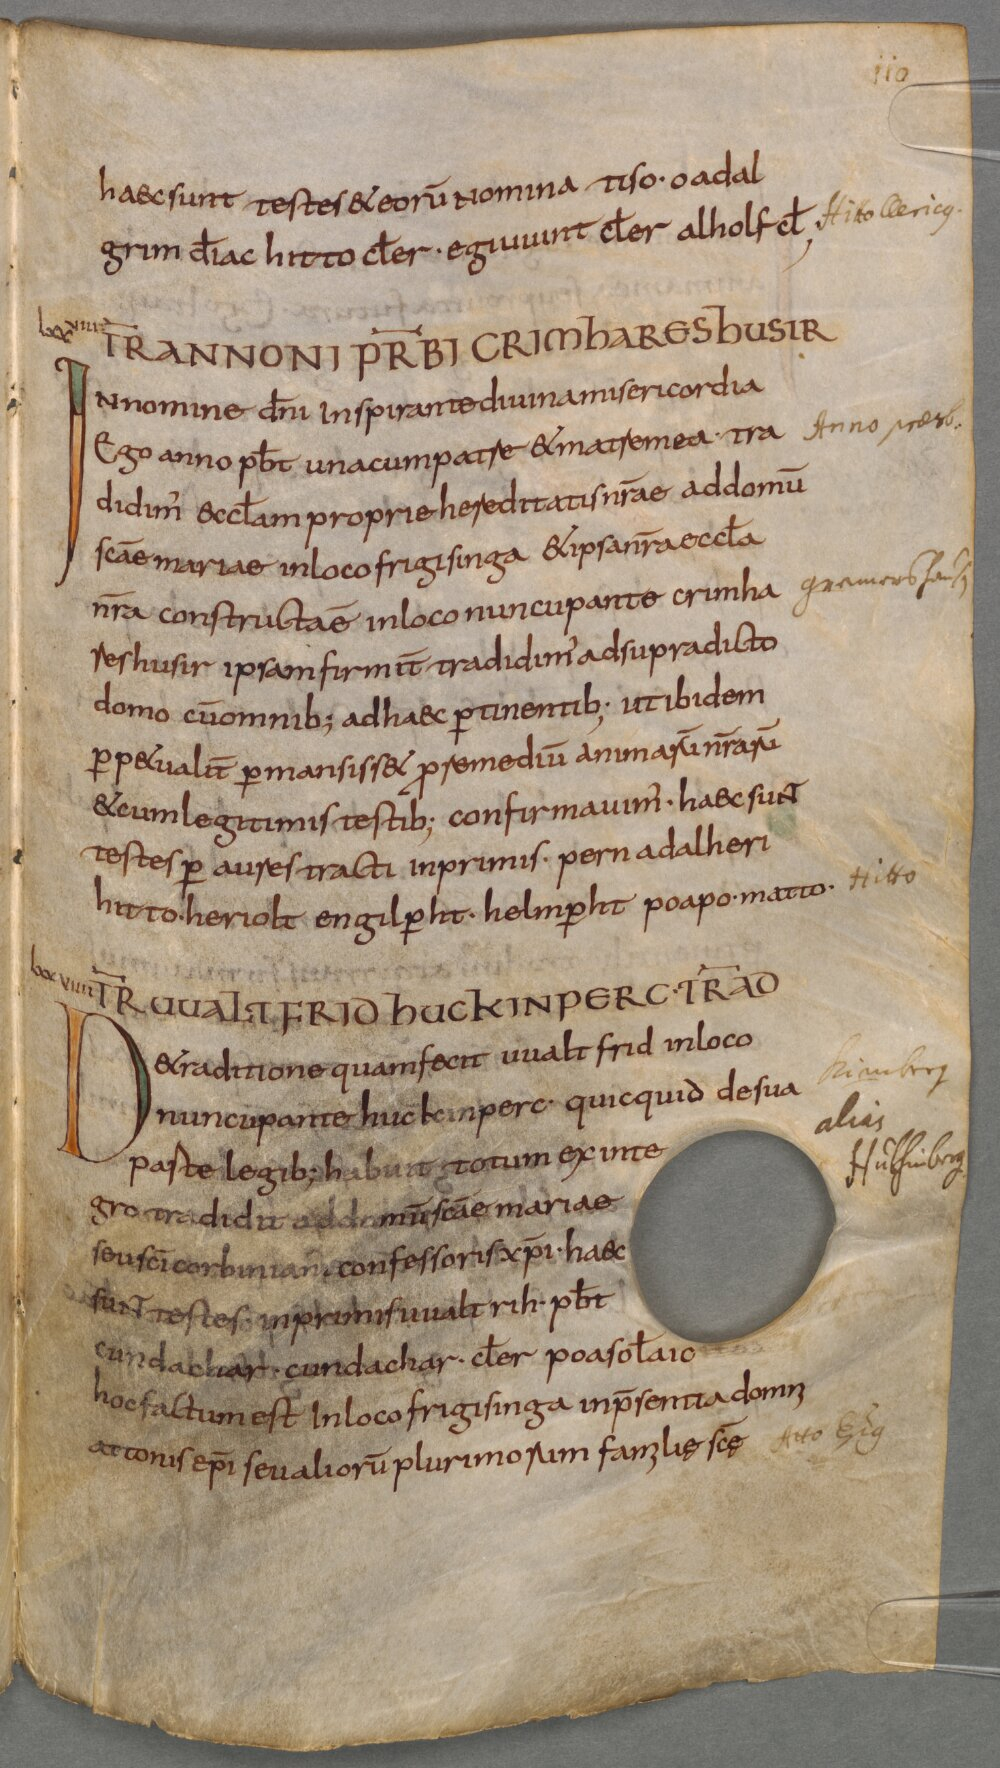 110
haec sunt testes & eorū nomina tiso · oadal
grim diac hitto cler · eguuunt cler alholf cl;
Hitto clericq.
lxxviiii
TR ANNONI PRBI CRIMHARESHUSIR
In nomine dni Inspirante diuina misericordia
Ego anno pbt una cum patre & matre mea · tra
Anno presb.
didim' eccłam proprie hereditatis nrae ad domū
scae mariae in loco frigisinga & ipsa nra eccła
nra constructaē in loco nuncupante crimha
gremershaus
reshusir ipsam firmit tradidim' ad supradicto
domo cū omnib; ad haec ptinentib; ut ibidem
ppe&ualit pmansiss& p remediū animarū nrarū
& cum legitimis testib; confirmauim' · haec sunt
testes p aures tracti inprimis · pern adalheri
hitto · heriolt engilpht · helmpht poapo · matto ·
Hitto
TR UUALTFRID HUCKINPERC · TRAD
D& raditione quam fecit uualtfrid in loco
nuncupante huckinperc · quicquid de sua
alias
parte legib; habuit totum ex inte
gro tradidit ad domū scae mariae
seu sci corbiniani confessoris xpi · haec
sunt testes · inprimis uualtrih · pbt
cundachar · cundachar · cler poasolaic
hoc factum est In loco frigisinga in psentia domni
attonis epi seu aliorū plurimorum familię scę
Atto